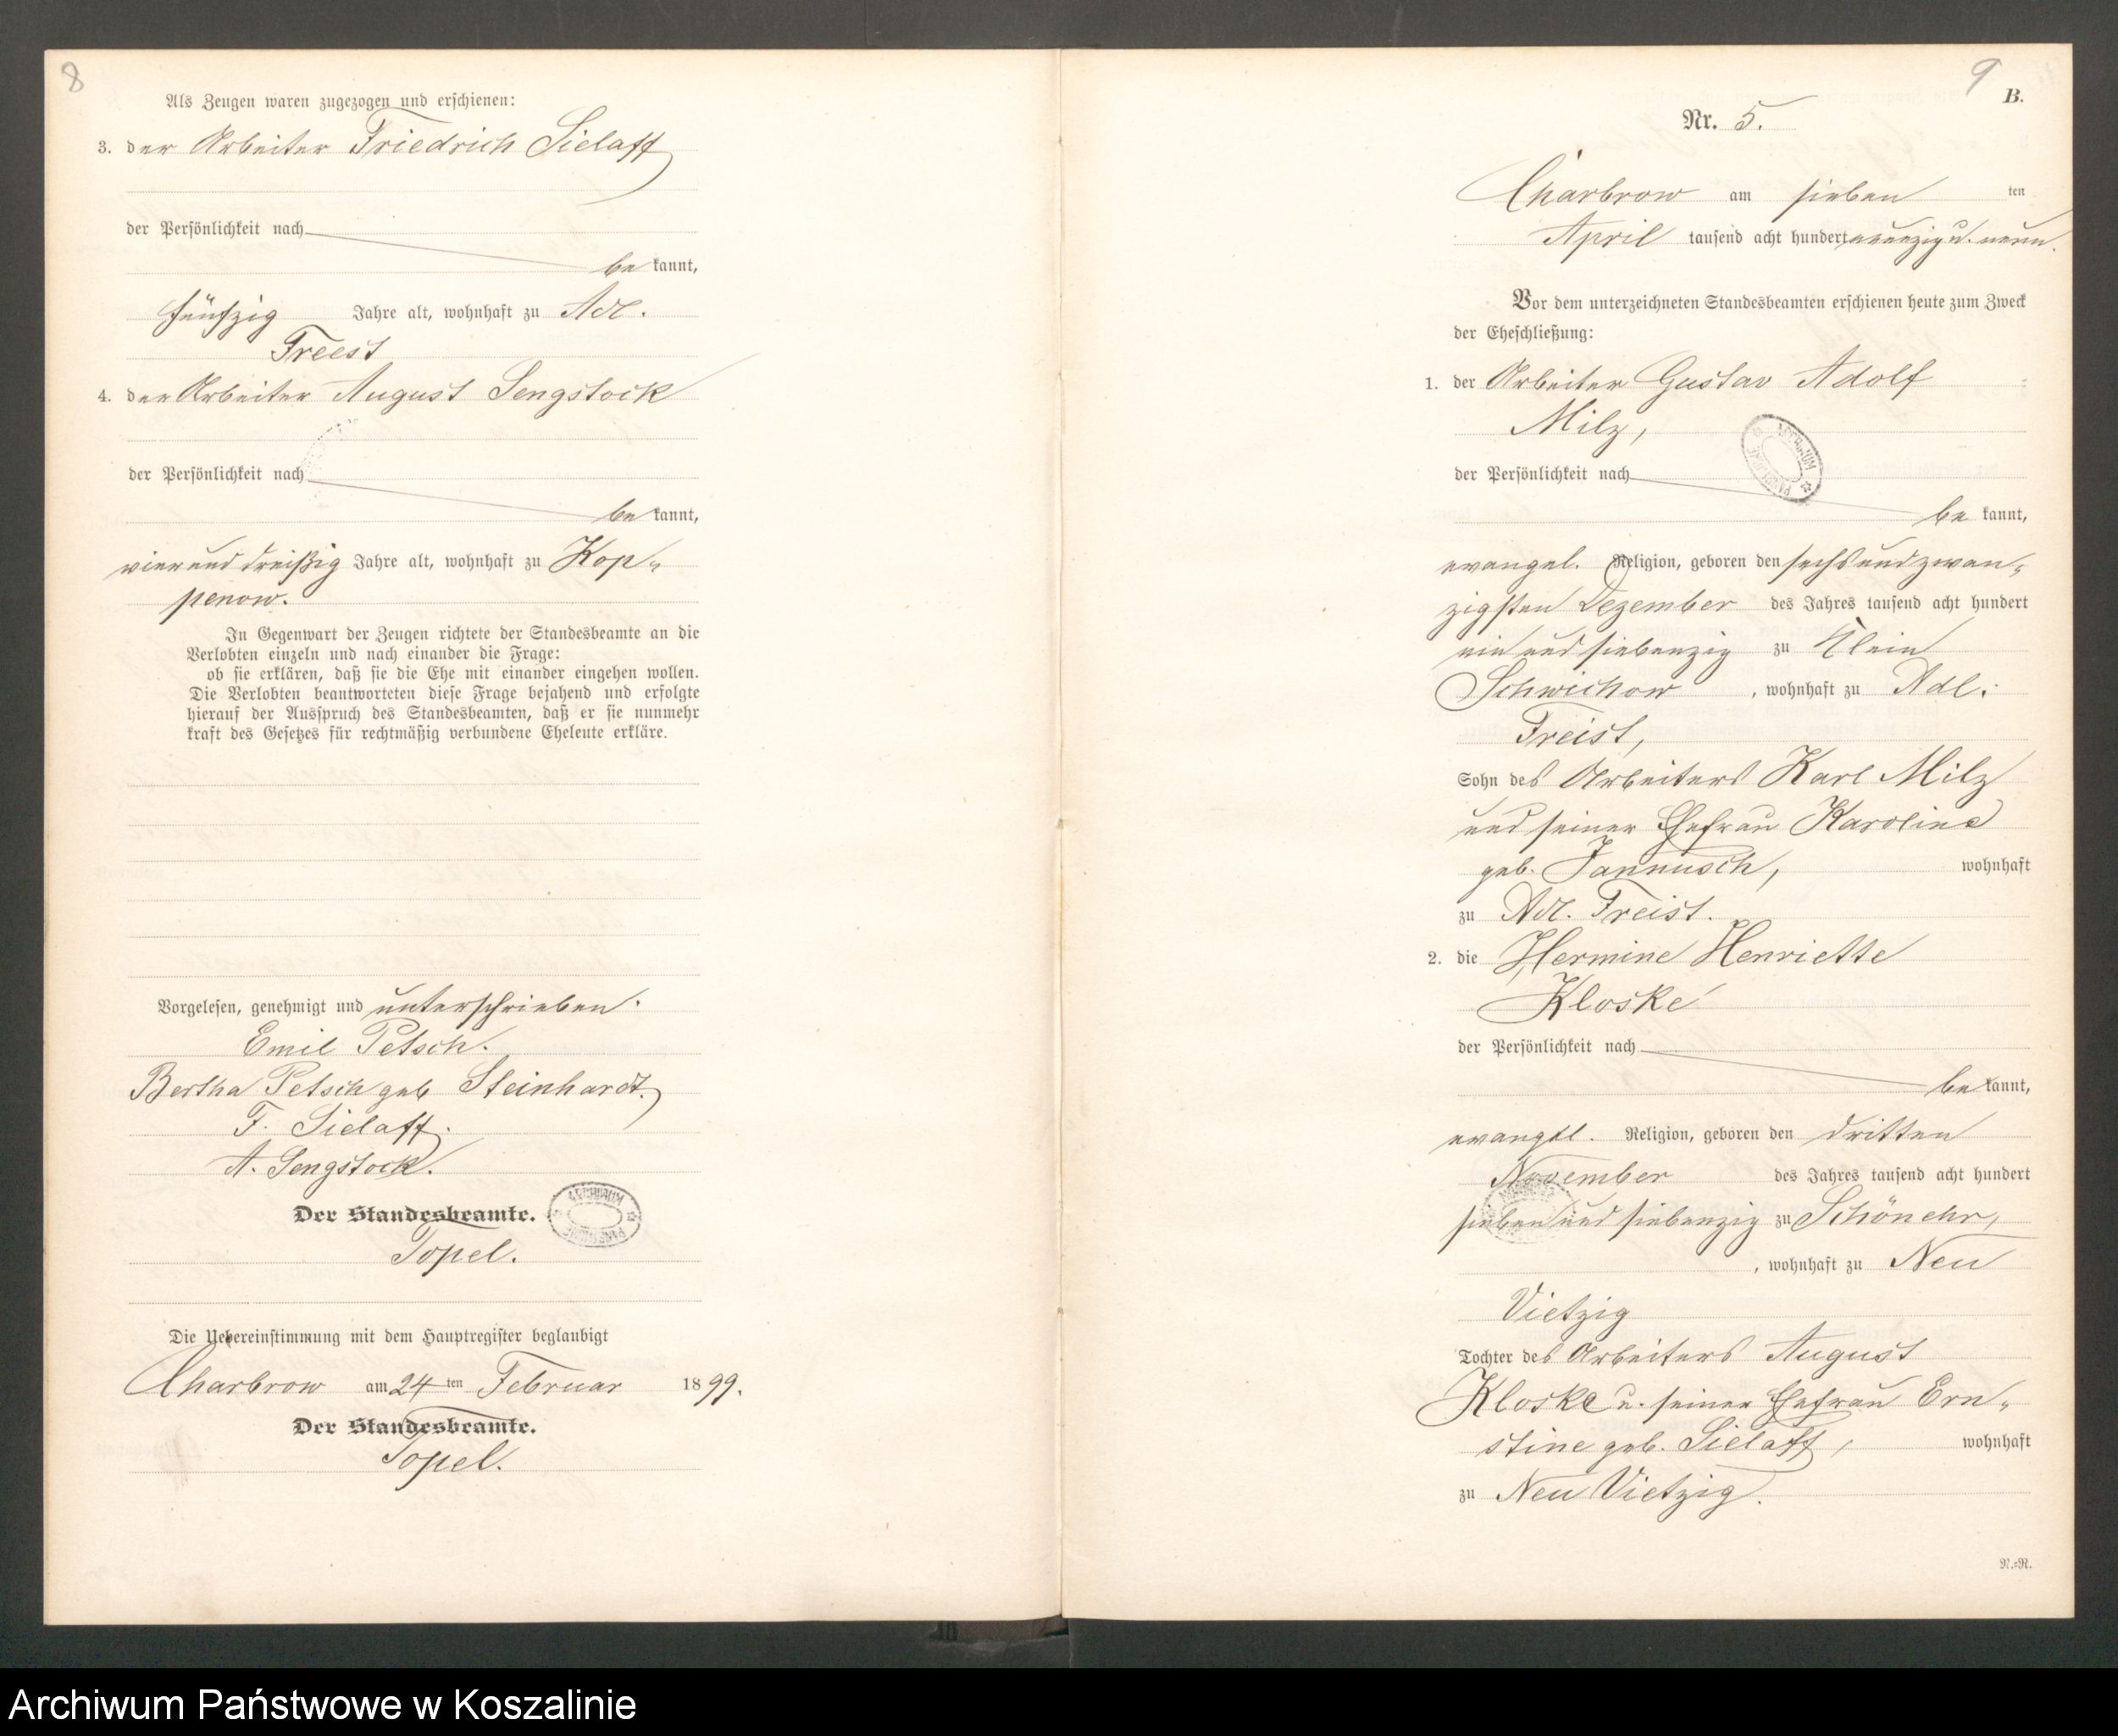 8
Als Zeugen waren zugezogen und erschienen:
3. der Arbeiter Friedrich Sielaff
der Persönlichkeit nach
be kannt,
fünfzig Jahre alt, wohnhaft zu Adl.
Freest
4. der Arbeiter August Sengstock
der Persönlichkeit nach
be kannt,
vierunddreißig Jahre alt, wohnhaft zu Kop-
penow.
In Gegenwart der Zeugen richtete der Standesbeamte an die
Verlobten einzeln und nach einander die Frage:
ob sie erklären, daß sie die Ehe mit einander eingehen wollen.
Die Verlobten beantworteten diese Frage bejahend und erfolgte
hierauf der Ausspruch des Standesbeamten, daß er sie nunmehr
kraft des Gesetzes für rechtmäßig verbundene Eheleute erkläre.
Vorgelesen, genehmigt und unterschrieben.
Emil Petsch.
Bertha Petsch geb Steinhardt.
F. Sielaff.
A. Sengstock.
Der Standesbeamte.
Topel.
Die Uebereinstimmung mit dem Hauptregister beglaubigt
Charbrow am 24 ten Februar 1899.
Der Standesbeamte.
Topel.
9
B.
Nr. 5.
Charbrow am sieben ten
April tausend acht hundert neunzig u. neun.
Vor dem unterzeichneten Standesbeamten erschienen heute zum Zweck
der Eheschließung:
1. der Arbeiter Gustav Adolf
Milz,
der Persönlichkeit nach
be kannt,
evangel. Religion, geboren den sechsundzwan-
zigsten Dezember des Jahres tausend acht hundert
ein und siebenzig zu Klein
Schwichow , wohnhaft zu Adl.
Freist,
Sohn des Arbeiters Karl Milz
und seiner Ehefrau Karoline
geb. Jannusch, wohnhaft
zu Adl. Freist.
2. die Hermine Henriette
Kloske
der Persönlichkeit nach
be kannt,
evangel. Religion, geboren den dritten
November des Jahres tausend acht hundert
sieben und siebenzig zu Schönehr,
, wohnhaft zu Neu
Vietzig
Tochter des Arbeiters August
Kloske u. seiner Ehefrau Ern-
stine geb. Sielaff, wohnhaft
zu Neu Vietzig.
N.=R.
Archiwum Państwowe w Koszalinie